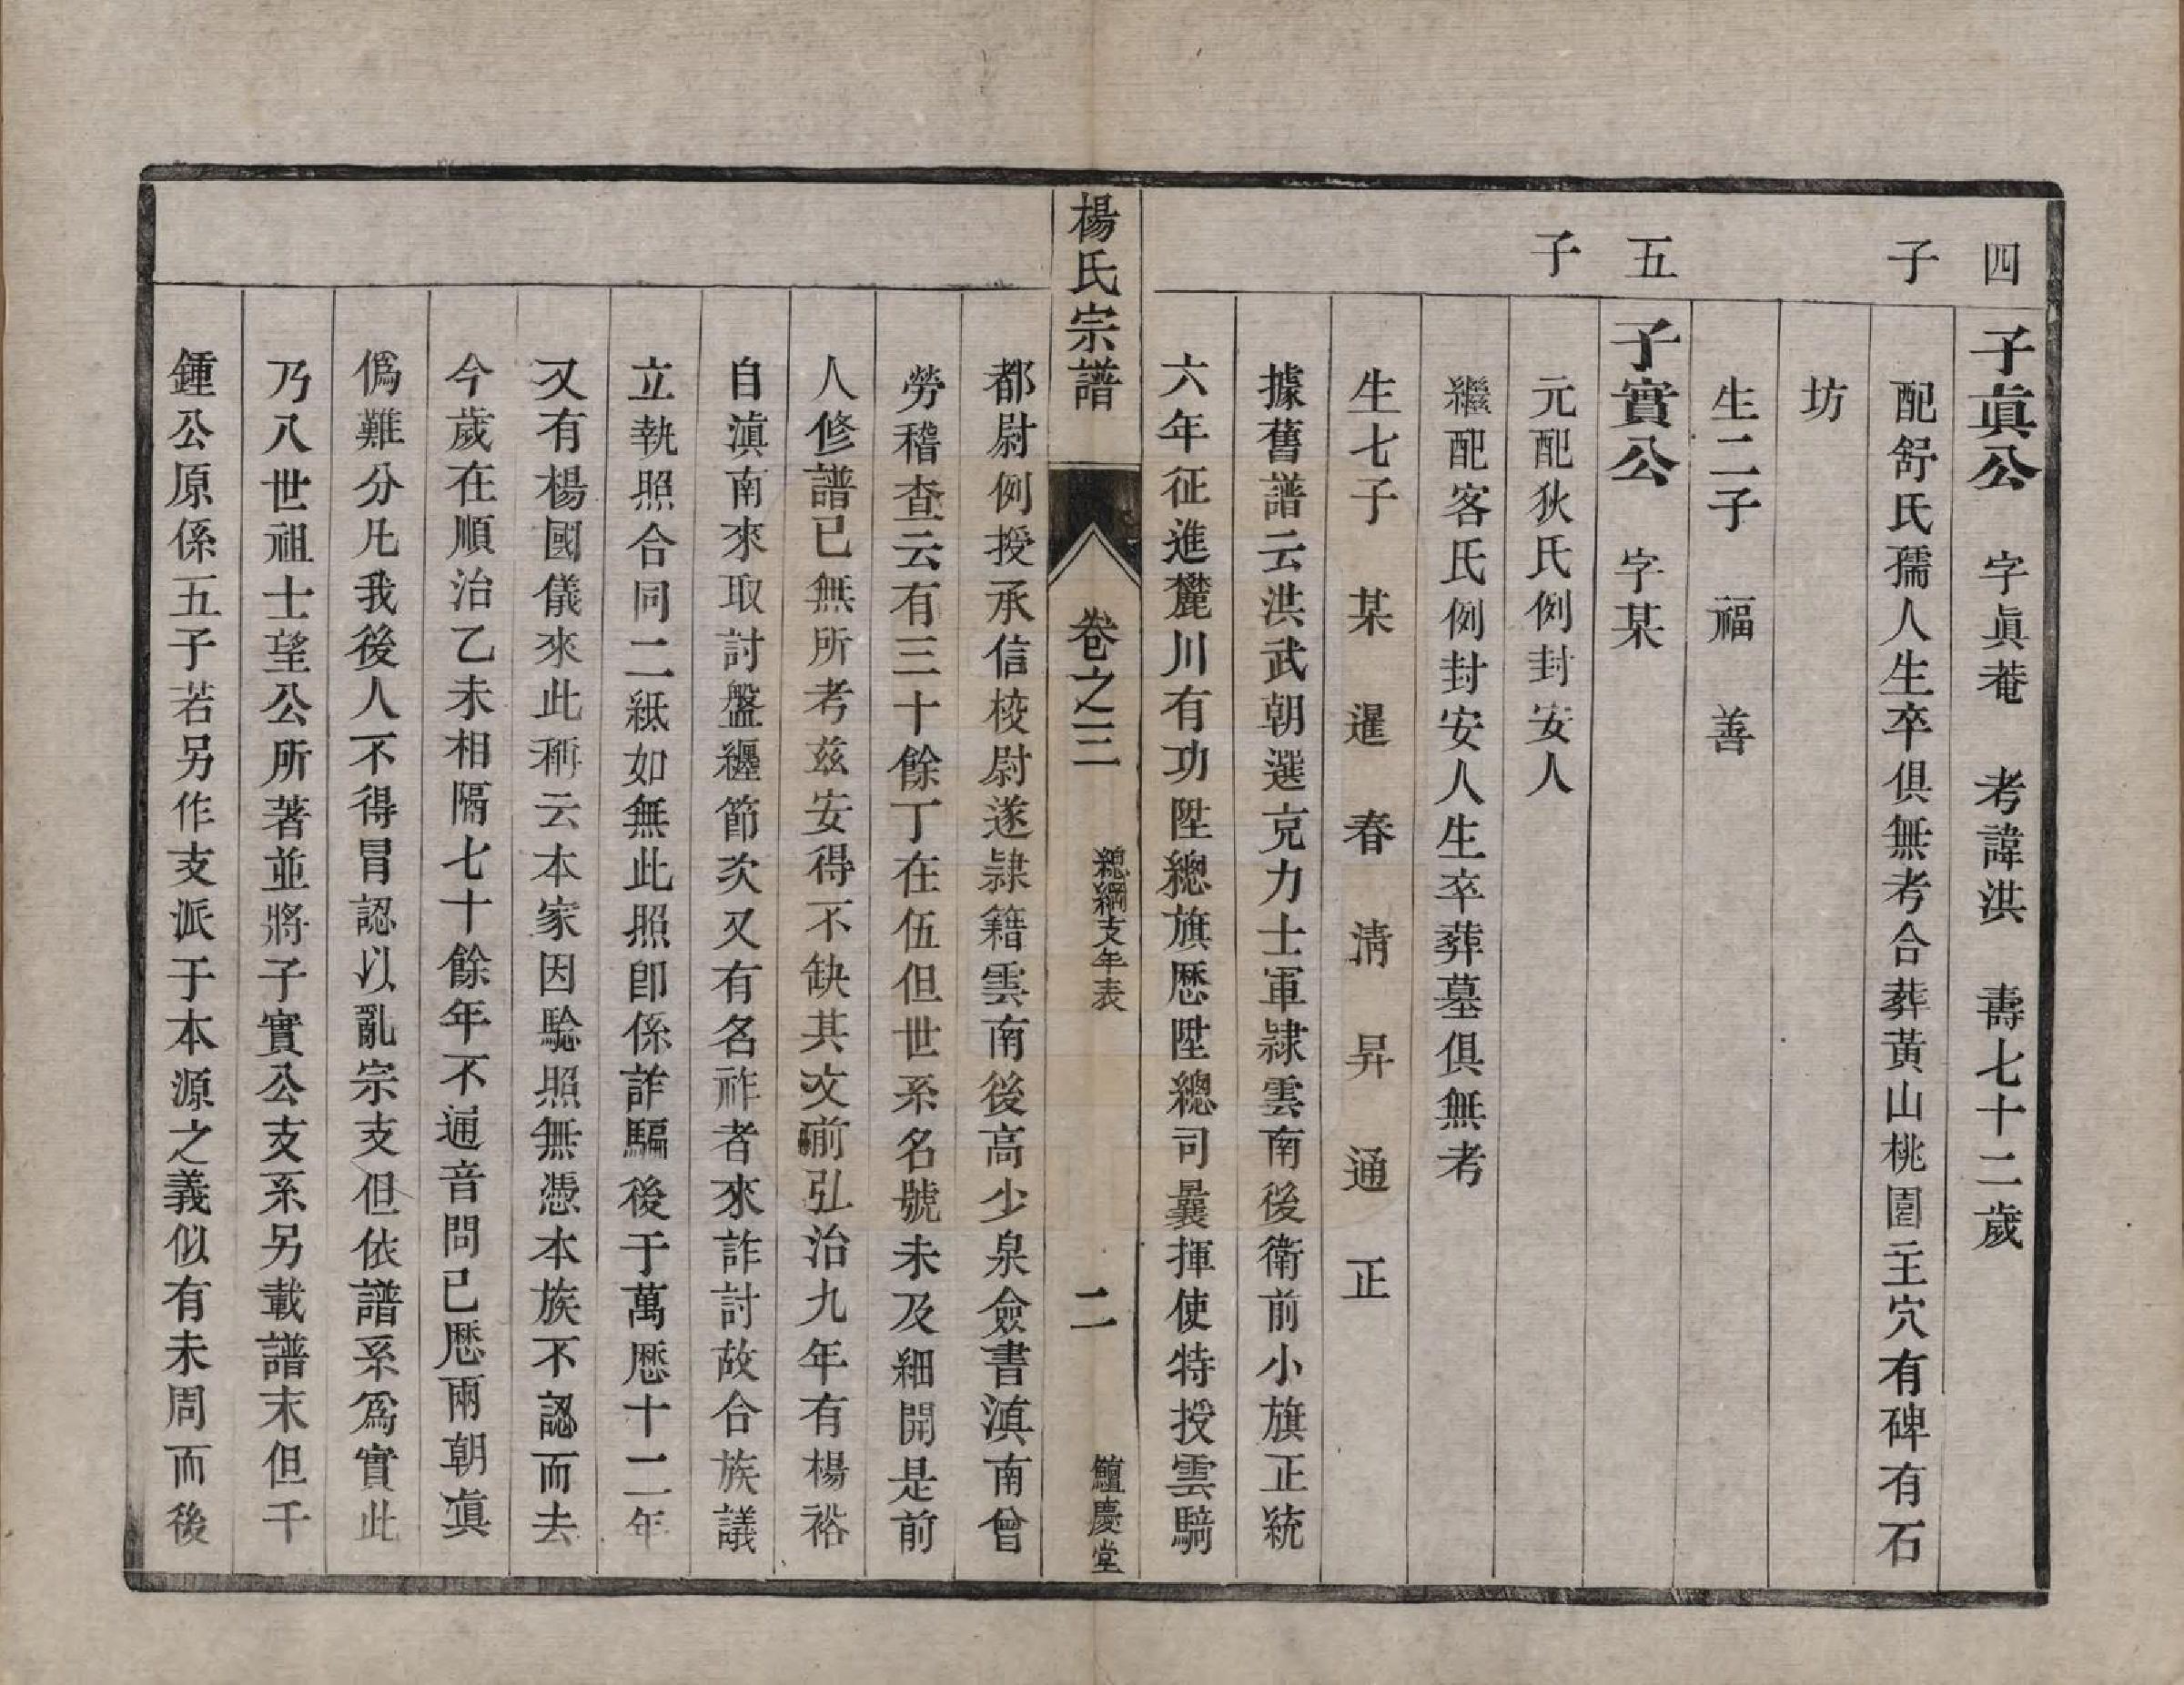 四
子
子眞公 字眞菴 考諱洪 壽七十二歲
配舒氏孺人生卒俱無考合葬黃山桃園主穴有碑有石
坊
生二子 福 善
五
子
子實公 字某
元配狄氏例封安人
繼配客氏例封安人生卒葬墓俱無考
生七子 某 暹 春 清 昇 通 正
據舊譜云洪武朝選克力士軍隸雲南後衛前小旗正統
六年征進麓川有功陞總旗歷陞總司曩揮使特授雲騎
楊氏宗譜 卷之三 總綱支年表 二 鱣慶堂
都尉例授承信校尉遂隸籍雲南後高少泉僉書滇南曾
勞稽查云有三十餘丁在伍但世系名號未及細開是前
人修譜已無所考茲安得不缺其文前弘治九年有楊裕
自滇南來取討盤纏節次又有名祚者來詐討故合族議
立執照合同二紙如無此照卽係詐騙後于萬歷十二年
又有楊國儀來此稱云本家因驗照無憑本族不認而去
今歲在順治乙未相隔七十餘年不通音問已歷兩朝眞
僞難分凡我後人不得冐認以亂宗支但依譜系爲實此
乃八世祖士望公所著並將子實公支系另載譜末但千
鍾公原係五子若另作支派于本源之義似有未周而後